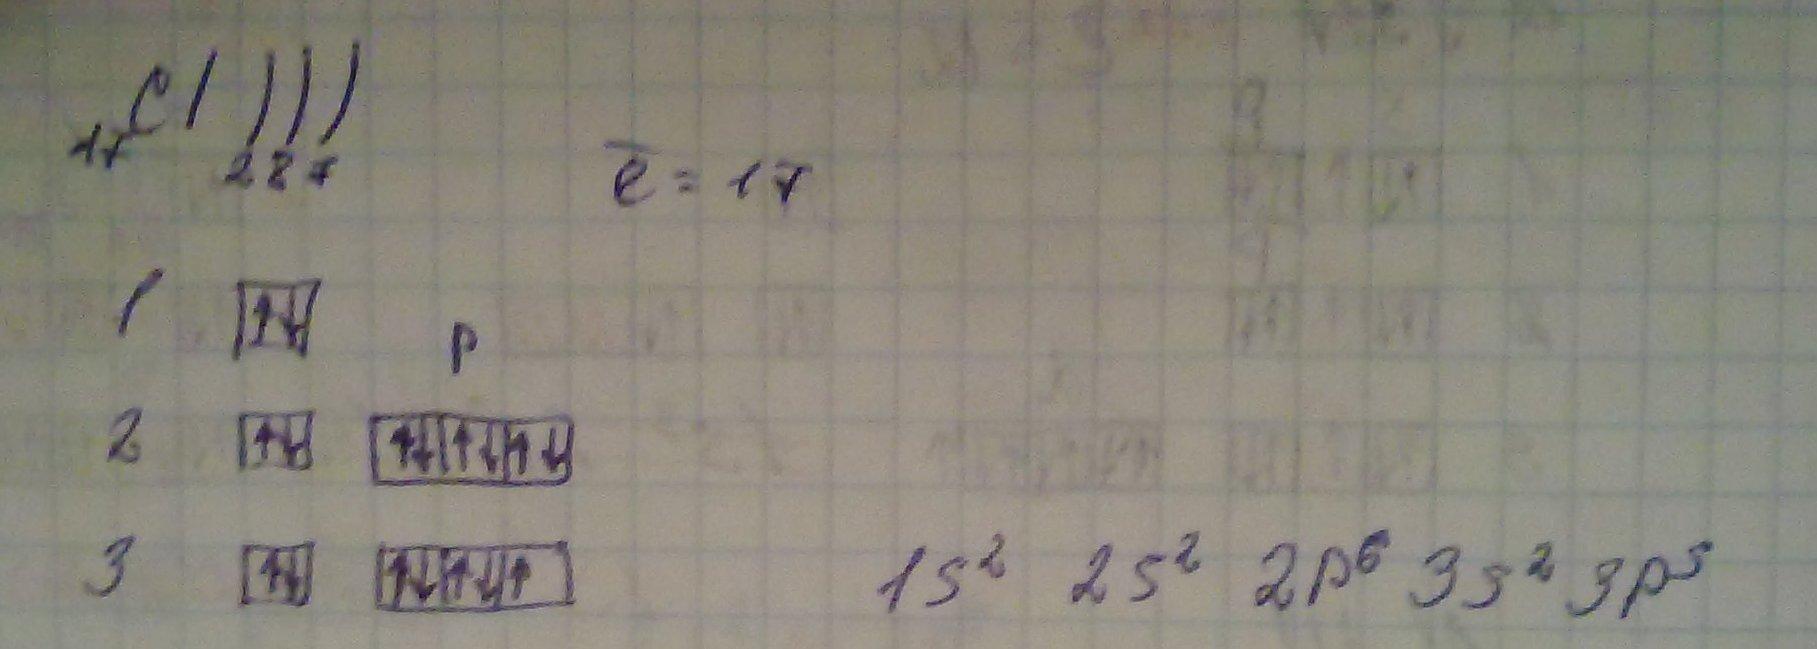 17Cl ) ) )
2 8 7
e̅ = 17
1 ↑↓
p
2 ↑↓ ↑↓ ↑↓ ↑↓
3 ↑↓ ↑↓ ↑↓ ↑
1s² 2s² 2p⁶ 3s² 3p⁵